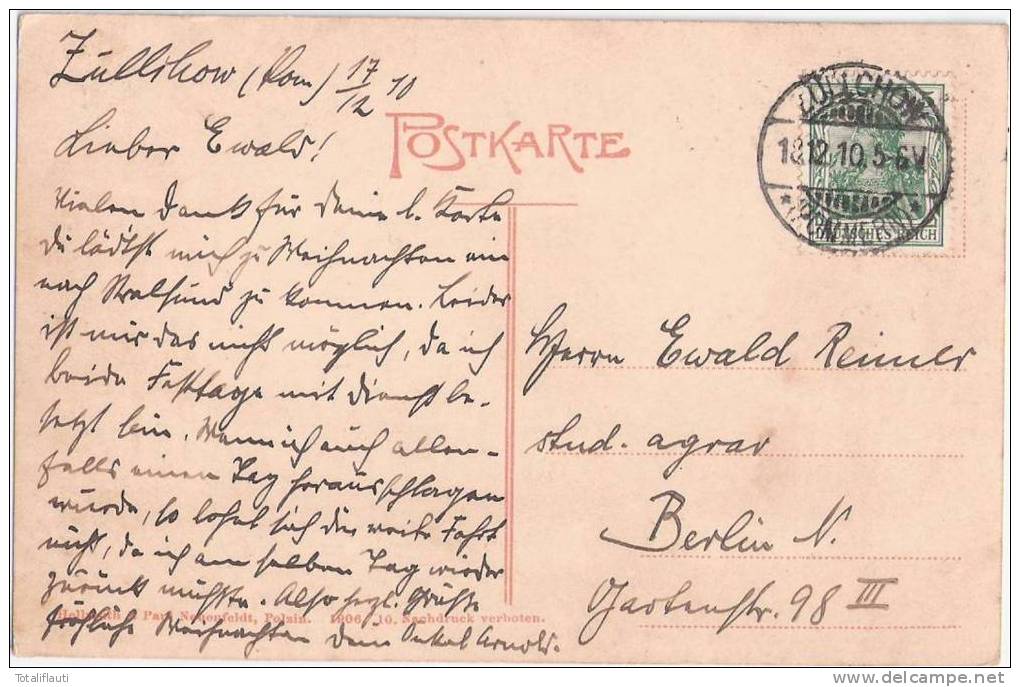 Züllchow (Pom) 17/12 10
POSTKARTE
ZÜLLCHOW
18.12.10.5-6V
*(POMMERN)*
DEUTSCHES REICH
Lieber Ewald!
Vielen Dank für deine l. Karte
du lädtst mich zu Weihnachten ein
nach Stralsund zu kommen. Leider
ist mir das nicht möglich, da ich
beide Festtage mit Dienst be-
setzt bin. Wenn ich auch allen-
falls einen Tag herausschlagen
würde, so lohnt sich die weite Fahrt
nicht, da ich am selben Tag wieder
zurück müsste. Also herzl. Grüße
fröhliche Weihnachten dein Onkel Arnold.
Paul Neuenfeldt, Polzin. 1906/10. Nachdruck verboten.
Herrn Ewald Reimer
stud. agrar
Berlin N.
Gartenstr. 98 III
Totaliflauti
delcampe.net